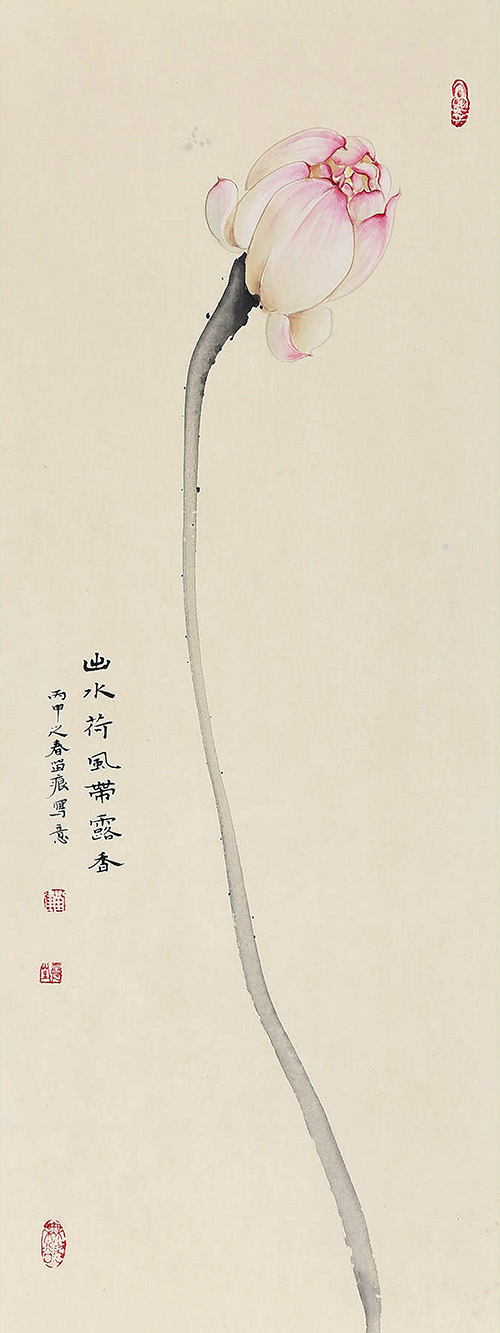 出水荷風帶露香
丙申之春留痕寫意